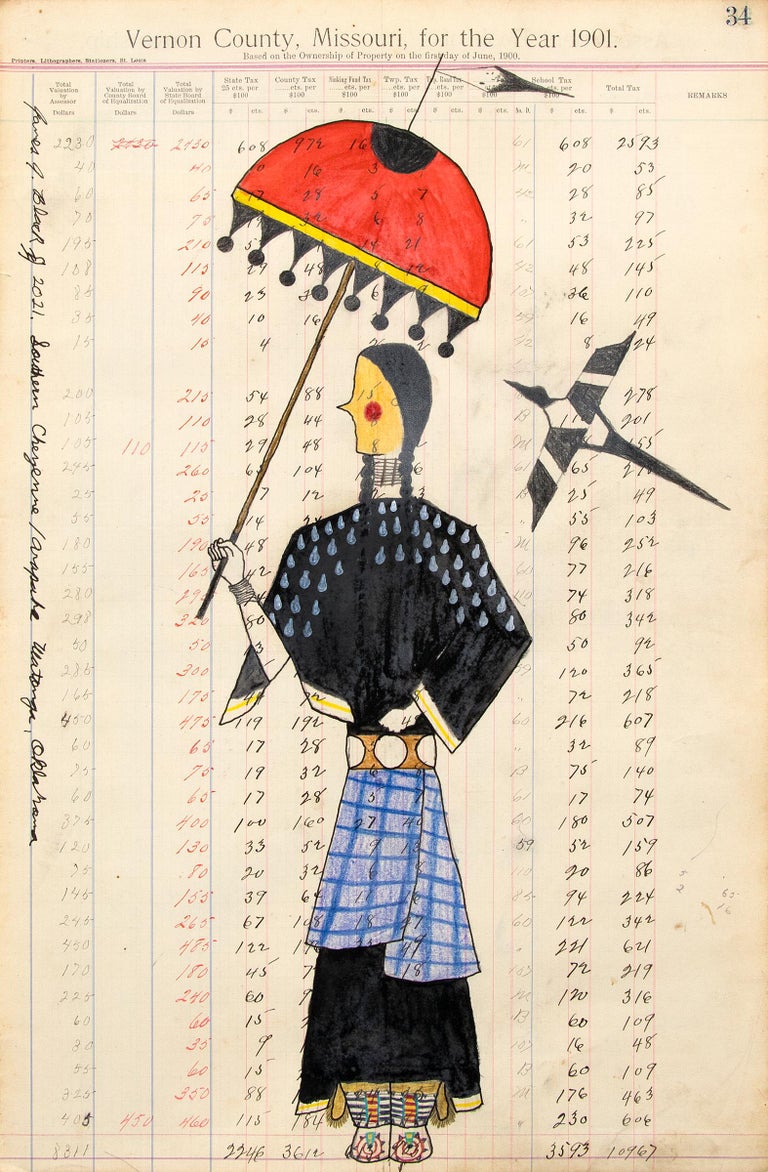 34
Vernon County, Missouri, for the Year 1901.
Based on the Ownership of Property on the first day of June, 1900.
Printers, Lithographers, Stationers, St. Louis
Total Valuation by Assessor Total Valuation by County Board of Equalization Total Valuation by State Board of Equalization State Tax 25 cts. per $100 County Tax cts. per $100 Sinking Fund Tax cts. per $100 Twp. Tax cts. per $100 School Tax cts. per $100 Total Tax REMARKS
Dollars Dollars Dollars $ cts. $ cts. $ cts. $ cts. $ cts. $ cts. No. D. $ cts. $ cts.
2230 2230 2430 608 972 16 61 608 2593
40 40 10 16 3 20 53
60 65 17 28 5 7 28 85
70 75 32 6 8 32 97
195 210 14 21 61 53 225
108 115 29 48 8 48 145
85 90 23 9 36 110
35 40 10 16 16 49
15 15 4 2 8 24
200 215 54 88 15 278
105 110 28 44 201
105 110 115 29 48 8 155
245 260 104 6 61 65
25 25 7 12 3 25 49
55 55 14 55 103
180 190 48 96 252
155 165 42 77 216
280 74 318
298 320 80 80 342
50 50 13 50 92
285 300 120 365
165 175 72 218
450 475 119 192 48 60 216 607
60 65 17 28 32 89
75 75 19 32 6 75 140
60 65 17 28 5 7 61 17 74
375 400 100 160 27 40 60 180 507
120 130 33 52 9 13 59 52 159
75 80 20 32 6 110 20 86
145 155 39 64 94 224
245 265 67 108 18 27 60 122 342
450 485 122 221 621
170 180 45 18 72 219
225 240 60 120 316
60 60 15 60 109
30 35 9 16 48
55 60 15 60 109
325 350 88 176 463
405 450 460 115 184 230 606
8311 2246 3612 3593 10967
James J. Black © 2021. Southern Cheyenne / Arapaho Watonga, Oklahoma